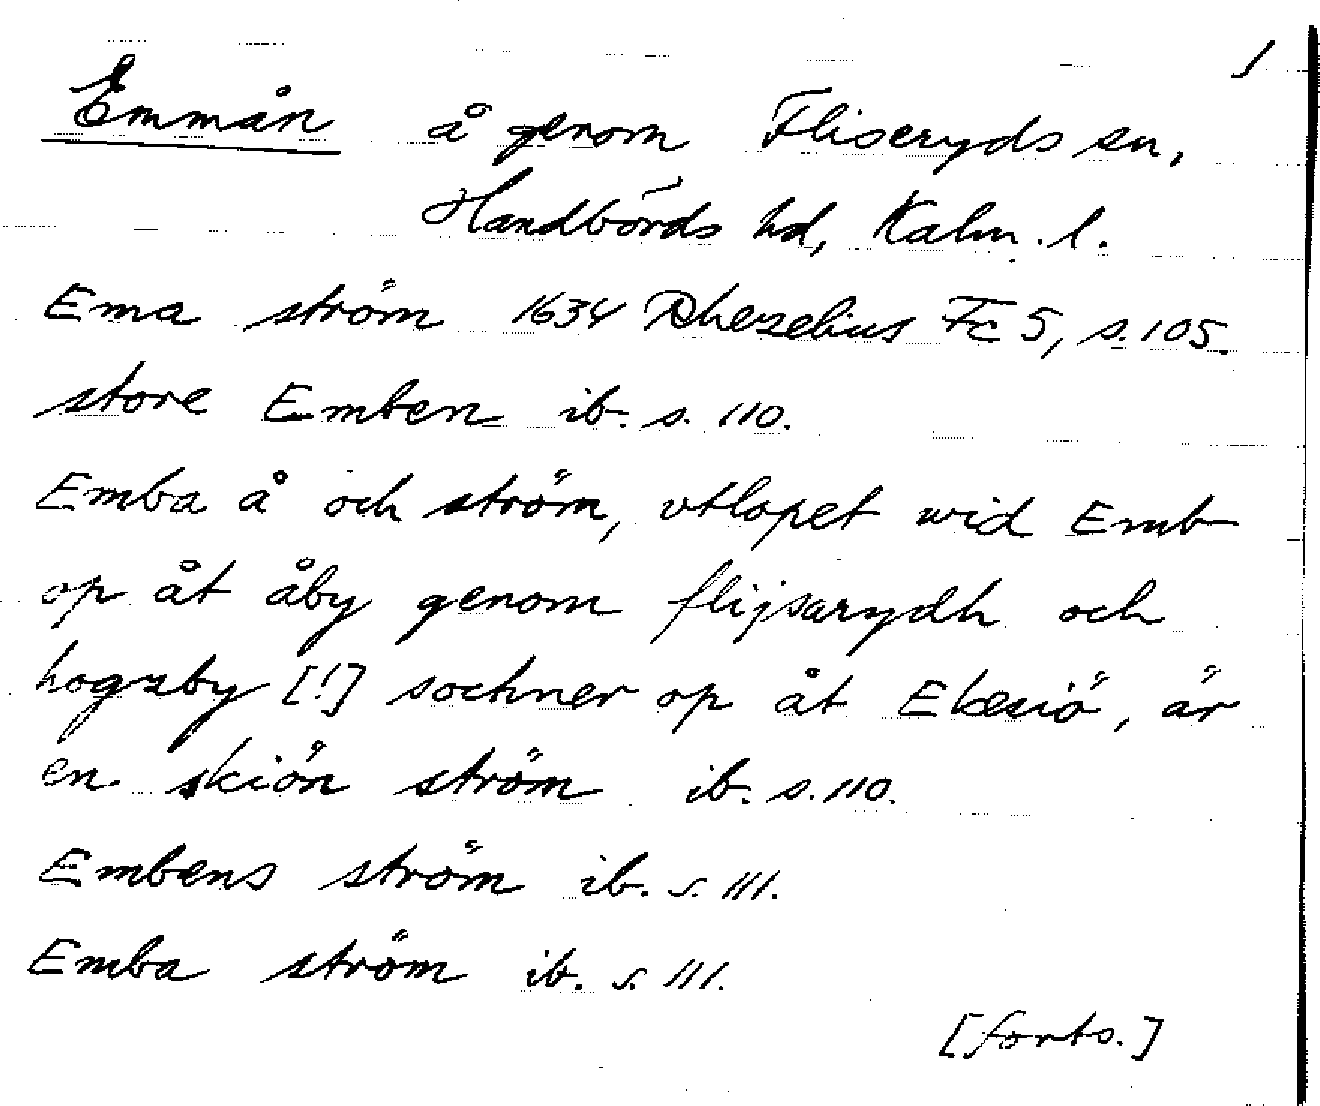 1
Emmån å genom Fliseryds sn,
Handbörds hd, Kalm. l.
Ema ström 1634 Rhezelius Fc 5, s. 105.
store Emben ib. s. 110.
Emba å och ström, vtlopet wid Emb
op åt åby genom flijsarydh och
hogzby [!] sochner op åt Ekesiö, är
en skiön ström ib. s. 110.
Embens ström ib. s. 111.
Emba ström ib. s. 111.
[forts.]